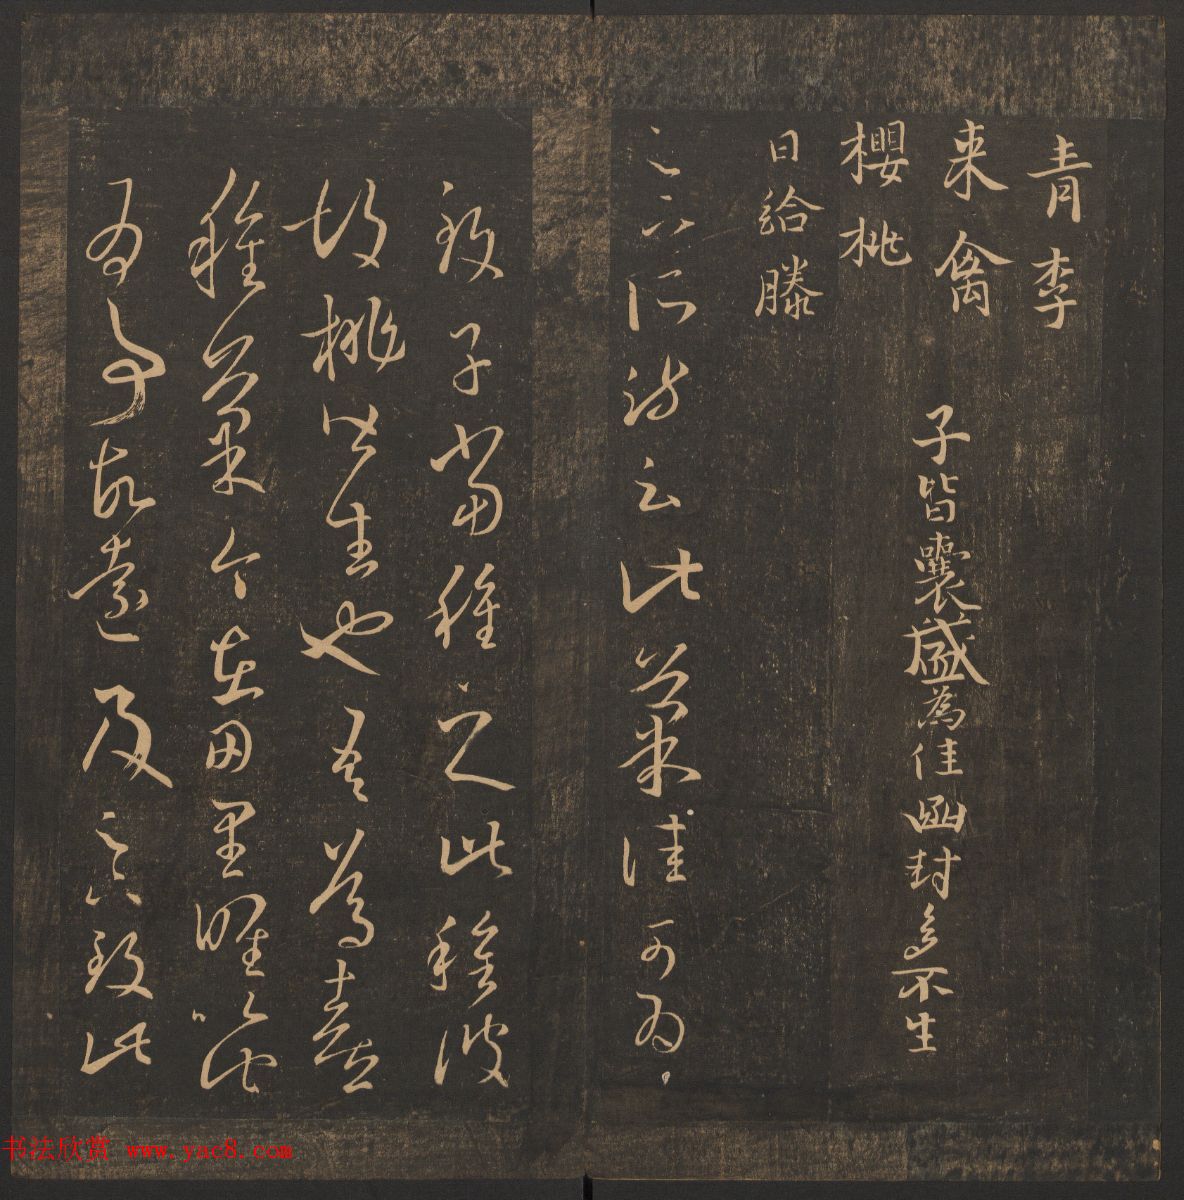 青李
来禽
櫻桃
日給滕
子皆囊盛為佳函封多不生
足下所疏云此菓佳可為
致子當種之此種彼
胡桃皆生也吾篤喜
種菓今在田里唯以此
為事故遠及足下致此
书法欣赏 www.yac8.com